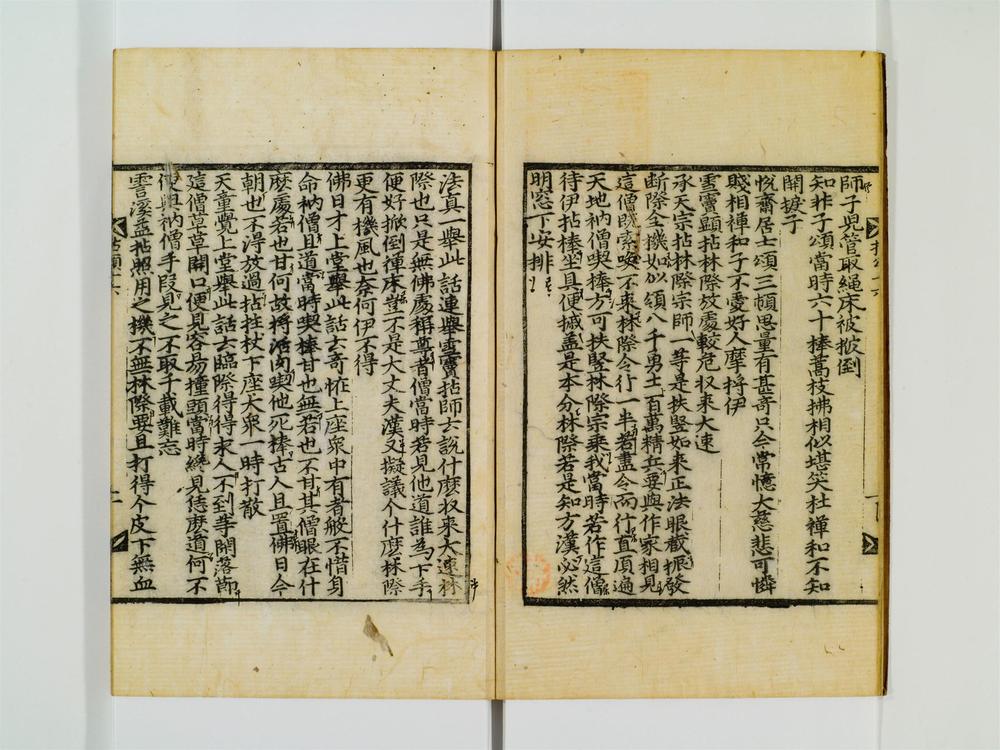 師子兒管取繩床被掀倒
知非子頌當時六十棒蒿枝拂相似堪笑杜禪和不知
開捩子
悅齋居士頌三頓思量有甚奇只今常憶大慈悲可憐
賤相禪和子不愛好人摩捋伊
雪竇顯拈林際放處較危收來大速
承天宗拈林際宗師一等是扶竪如來正法眼截振發
断際全機如似領八千勇士百萬精兵要與作家相見
這僧旣索喚不來林際令行一半若盡令而行直須遍
天地衲僧喫棒方可扶竪林際宗乘我當時若作這僧
待伊拈棒坐具便摵盖是本分林際若是知方漢必然
明窓下安排
法真一舉此話連舉雲竇拈師云說什麽收來大速林
際也只是無佛處稱尊者僧當時若見他道誰爲下手
便好掀倒禪床豈不是大丈夫漢又擬議个什麽林際
更有機風也奈何伊不得
佛日才上堂舉此話云奇怪上座衆中有者般不惜身
命衲僧且道當時喫棒甘也無若也不甘其僧眼在什
麽處若也甘何故將活肉喫他死棒古人且置佛日今
朝也不得放過拈拄杖下座大衆一時打散
天童覺上堂舉此話云臨際得得求人不到等閑落節
這僧草草開口便見容易撞頭當時纔見恁麽道何不
便與衲僧手段見之不取千載難忘
雪溪益拈照用之機不無林際要且打得个皮下無血